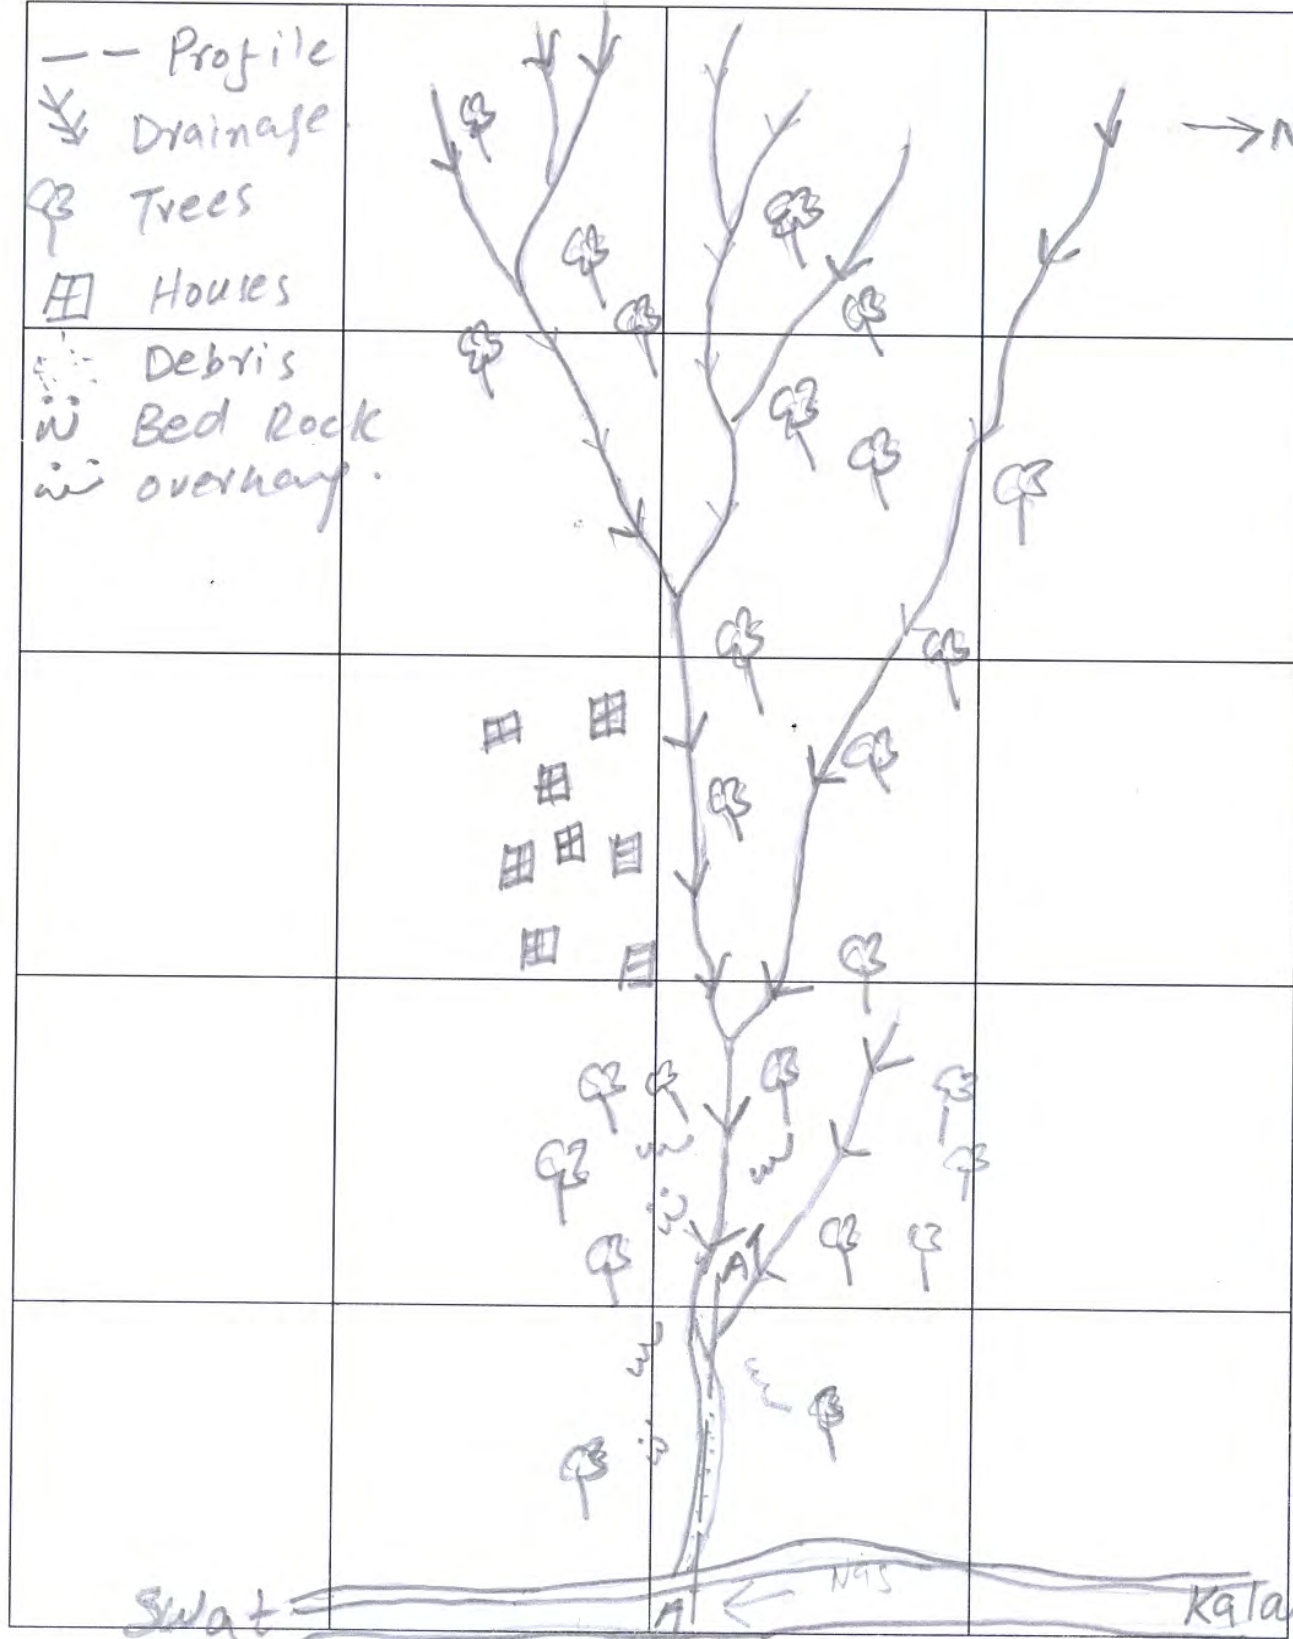 -- Profile
Drainage
Trees
Houses
Debris
Bed Rock
overhang.
→ N
A
Swat
A
N95
Kala